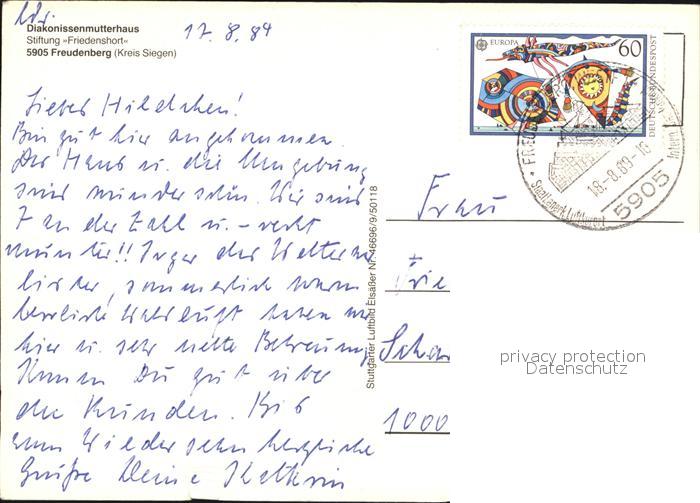 Diakonissenmutterhaus
Stiftung »Friedenshort«
5905 Freudenberg (Kreis Siegen)
17.8.89
Liebes Hildchen!
Bin gut hier angekommen.
Das Haus u. die Umgebung
sind wunderschön. Wir sind
7 an der Zahl u. - recht
munter!! Sogar das Wetter
ist, sommerlich warm
herrliche Waldluft haben wir
hier u. sehr nette Betreuung
Komm Du gut über
die Runden. Bis
zum Wiedersehn herzliche
Grüße Deine Kathrin
Stuttgarter Luftbild Elsäßer Nr. 46696/9/50118
EUROPA
60
DEUTSCHE BUNDESPOST
18.-8.89-18
5905
Frau
1000
privacy protection
Datenschutz